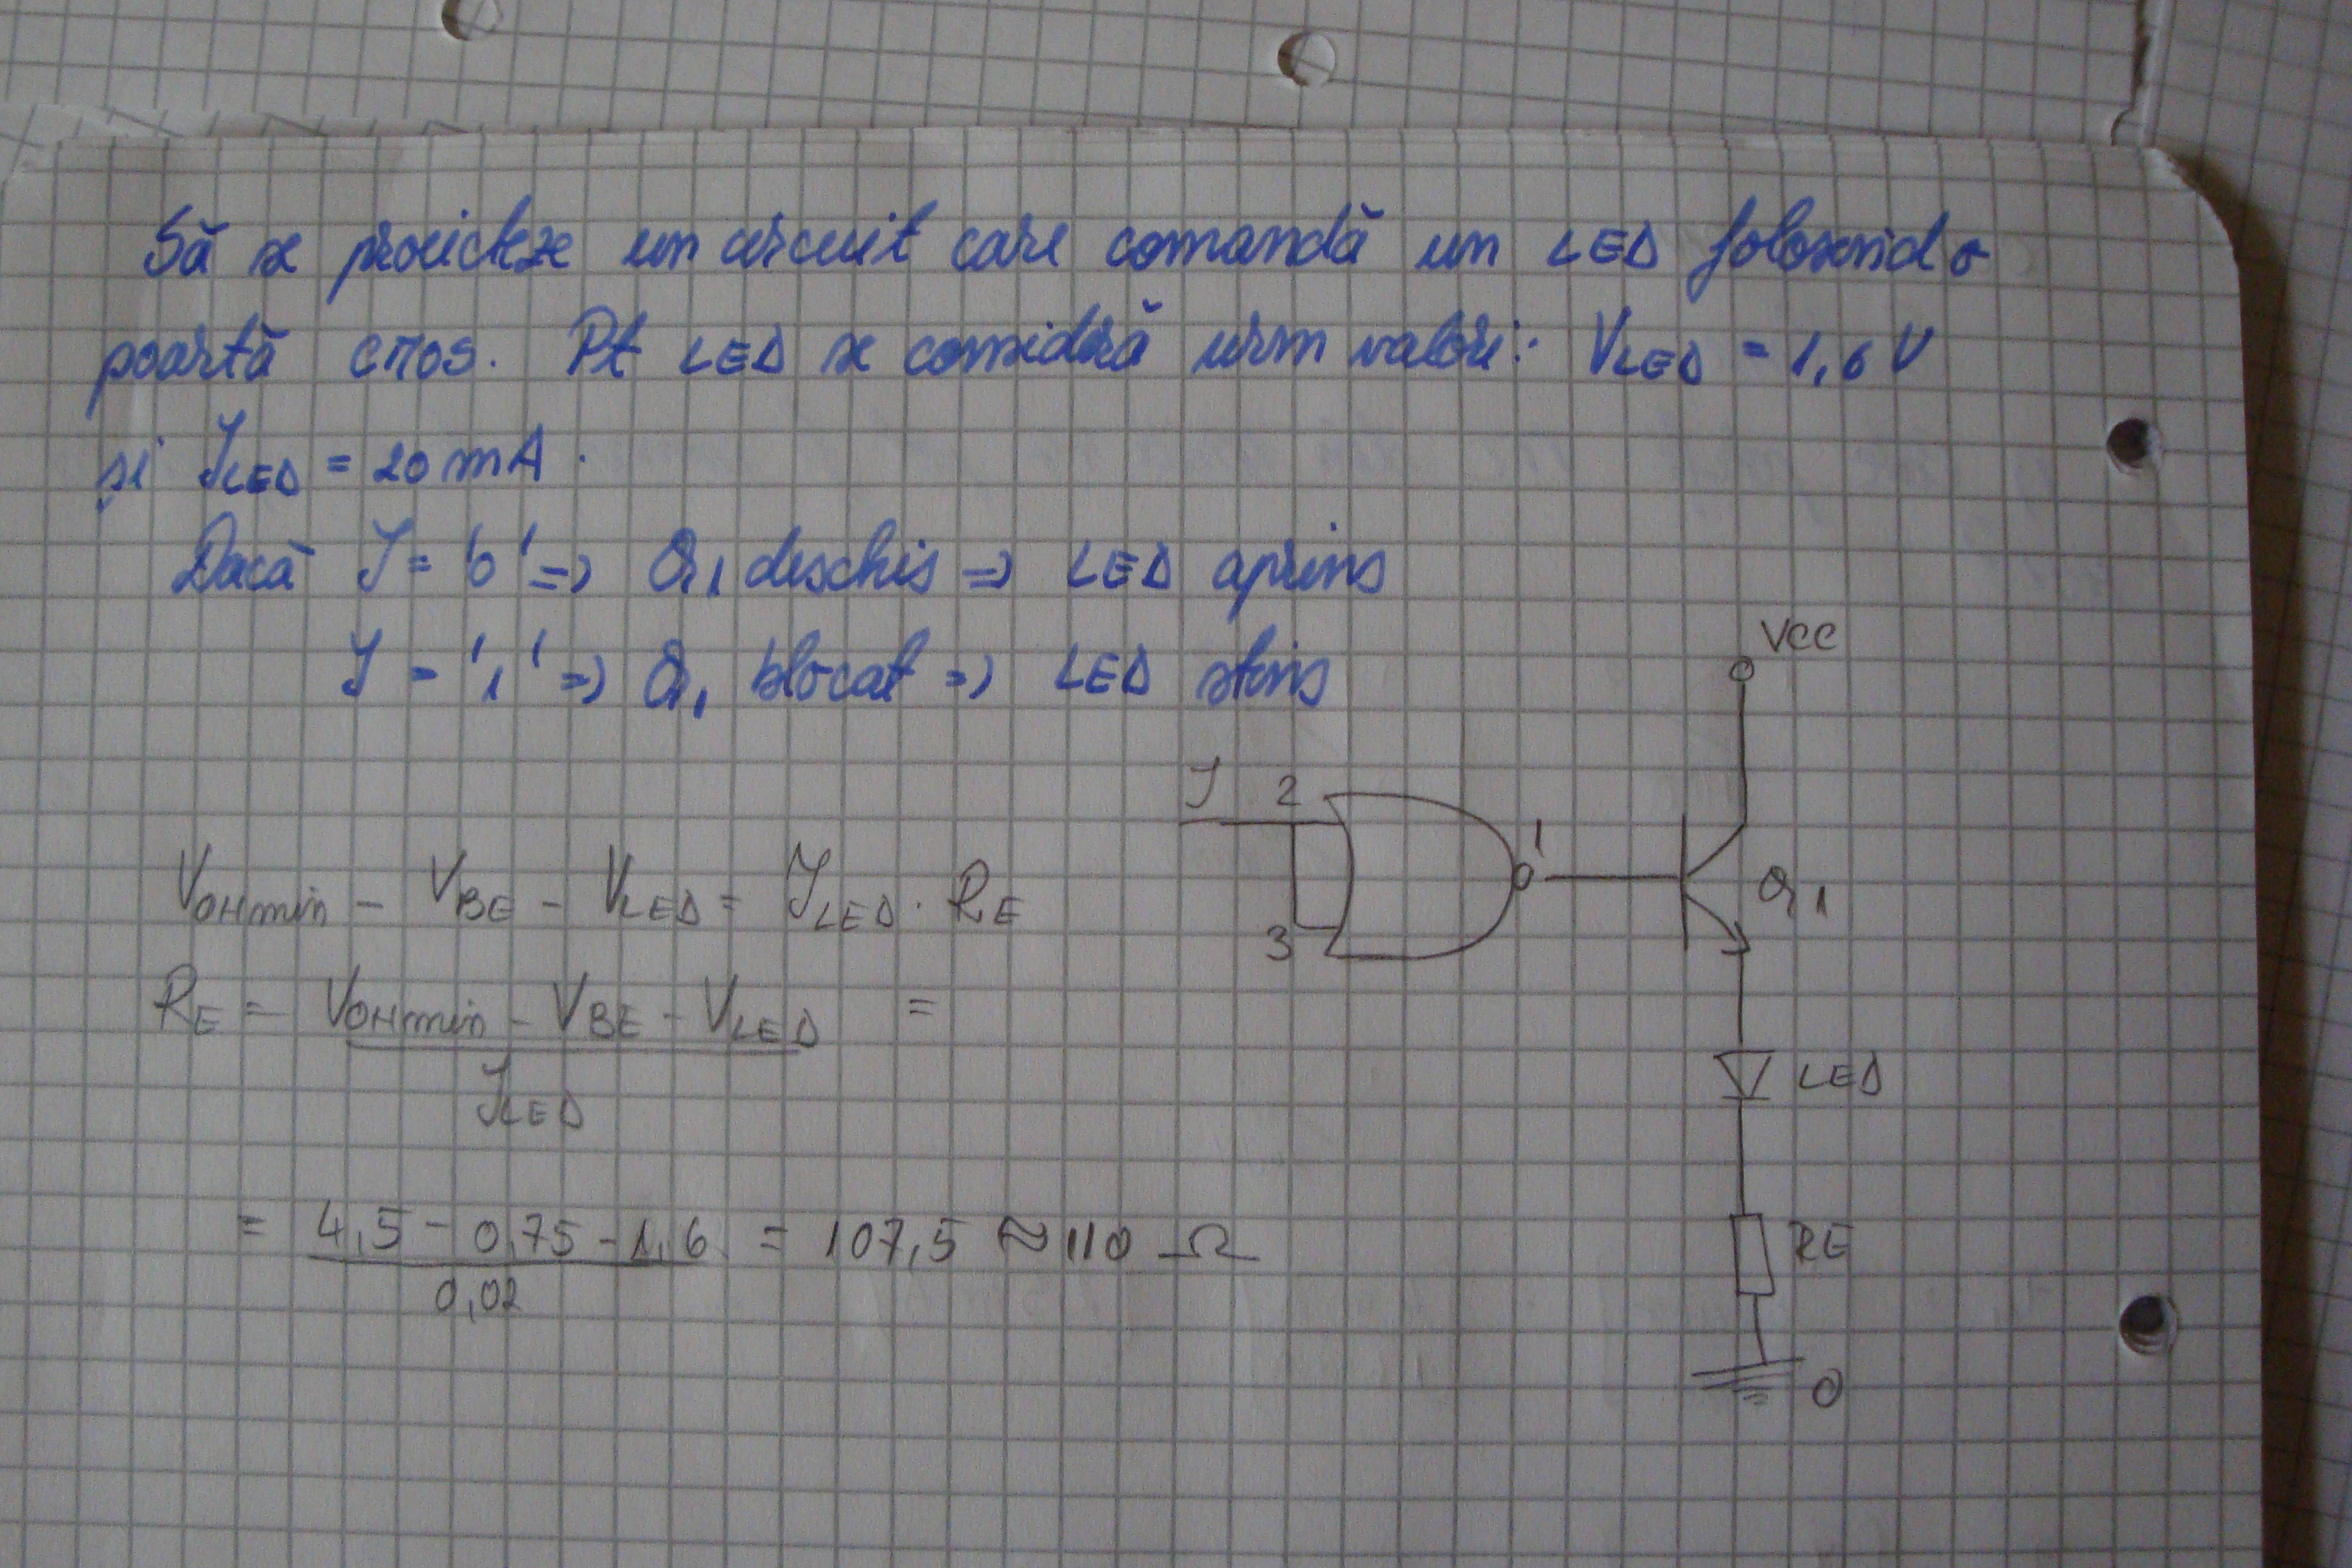 Să se proiecteze un circuit care comandă un LED folosind o
poartă CMOS. Pt LED se consideră urm valori: VLED = 1,6 V
și ILED = 20 mA.
Dacă I = '0' => Q1 deschis => LED aprins
I = '1' => Q1 blocat => LED stins
VOHmin - VBE - VLED = ILED · RE
RE = VOHmin - VBE - VLED =
ILED
= 4,5 - 0,75 - 1,6 = 107,5 ≈ 110 Ω
0,02
VCC
I 2
1
3
Q1
LED
RE
0